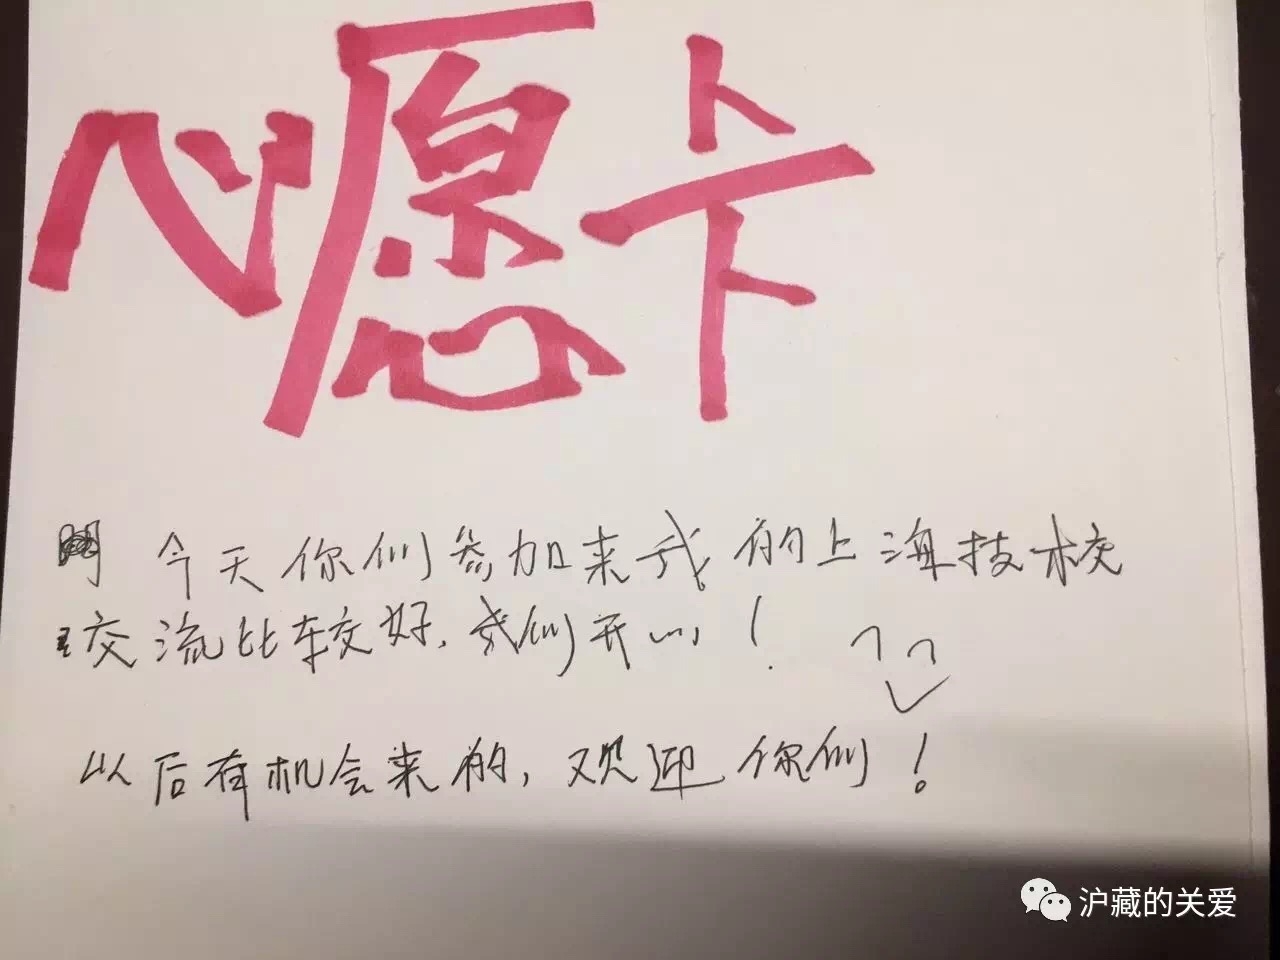 心愿卡
今天你们参加来我的上海技校
交流比较好,我们开心!
以后有机会来的,欢迎你们!
沪藏的关爱